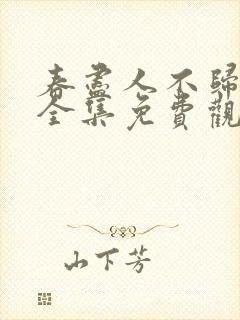 春盡人不歸
全集免費觀
山下芳